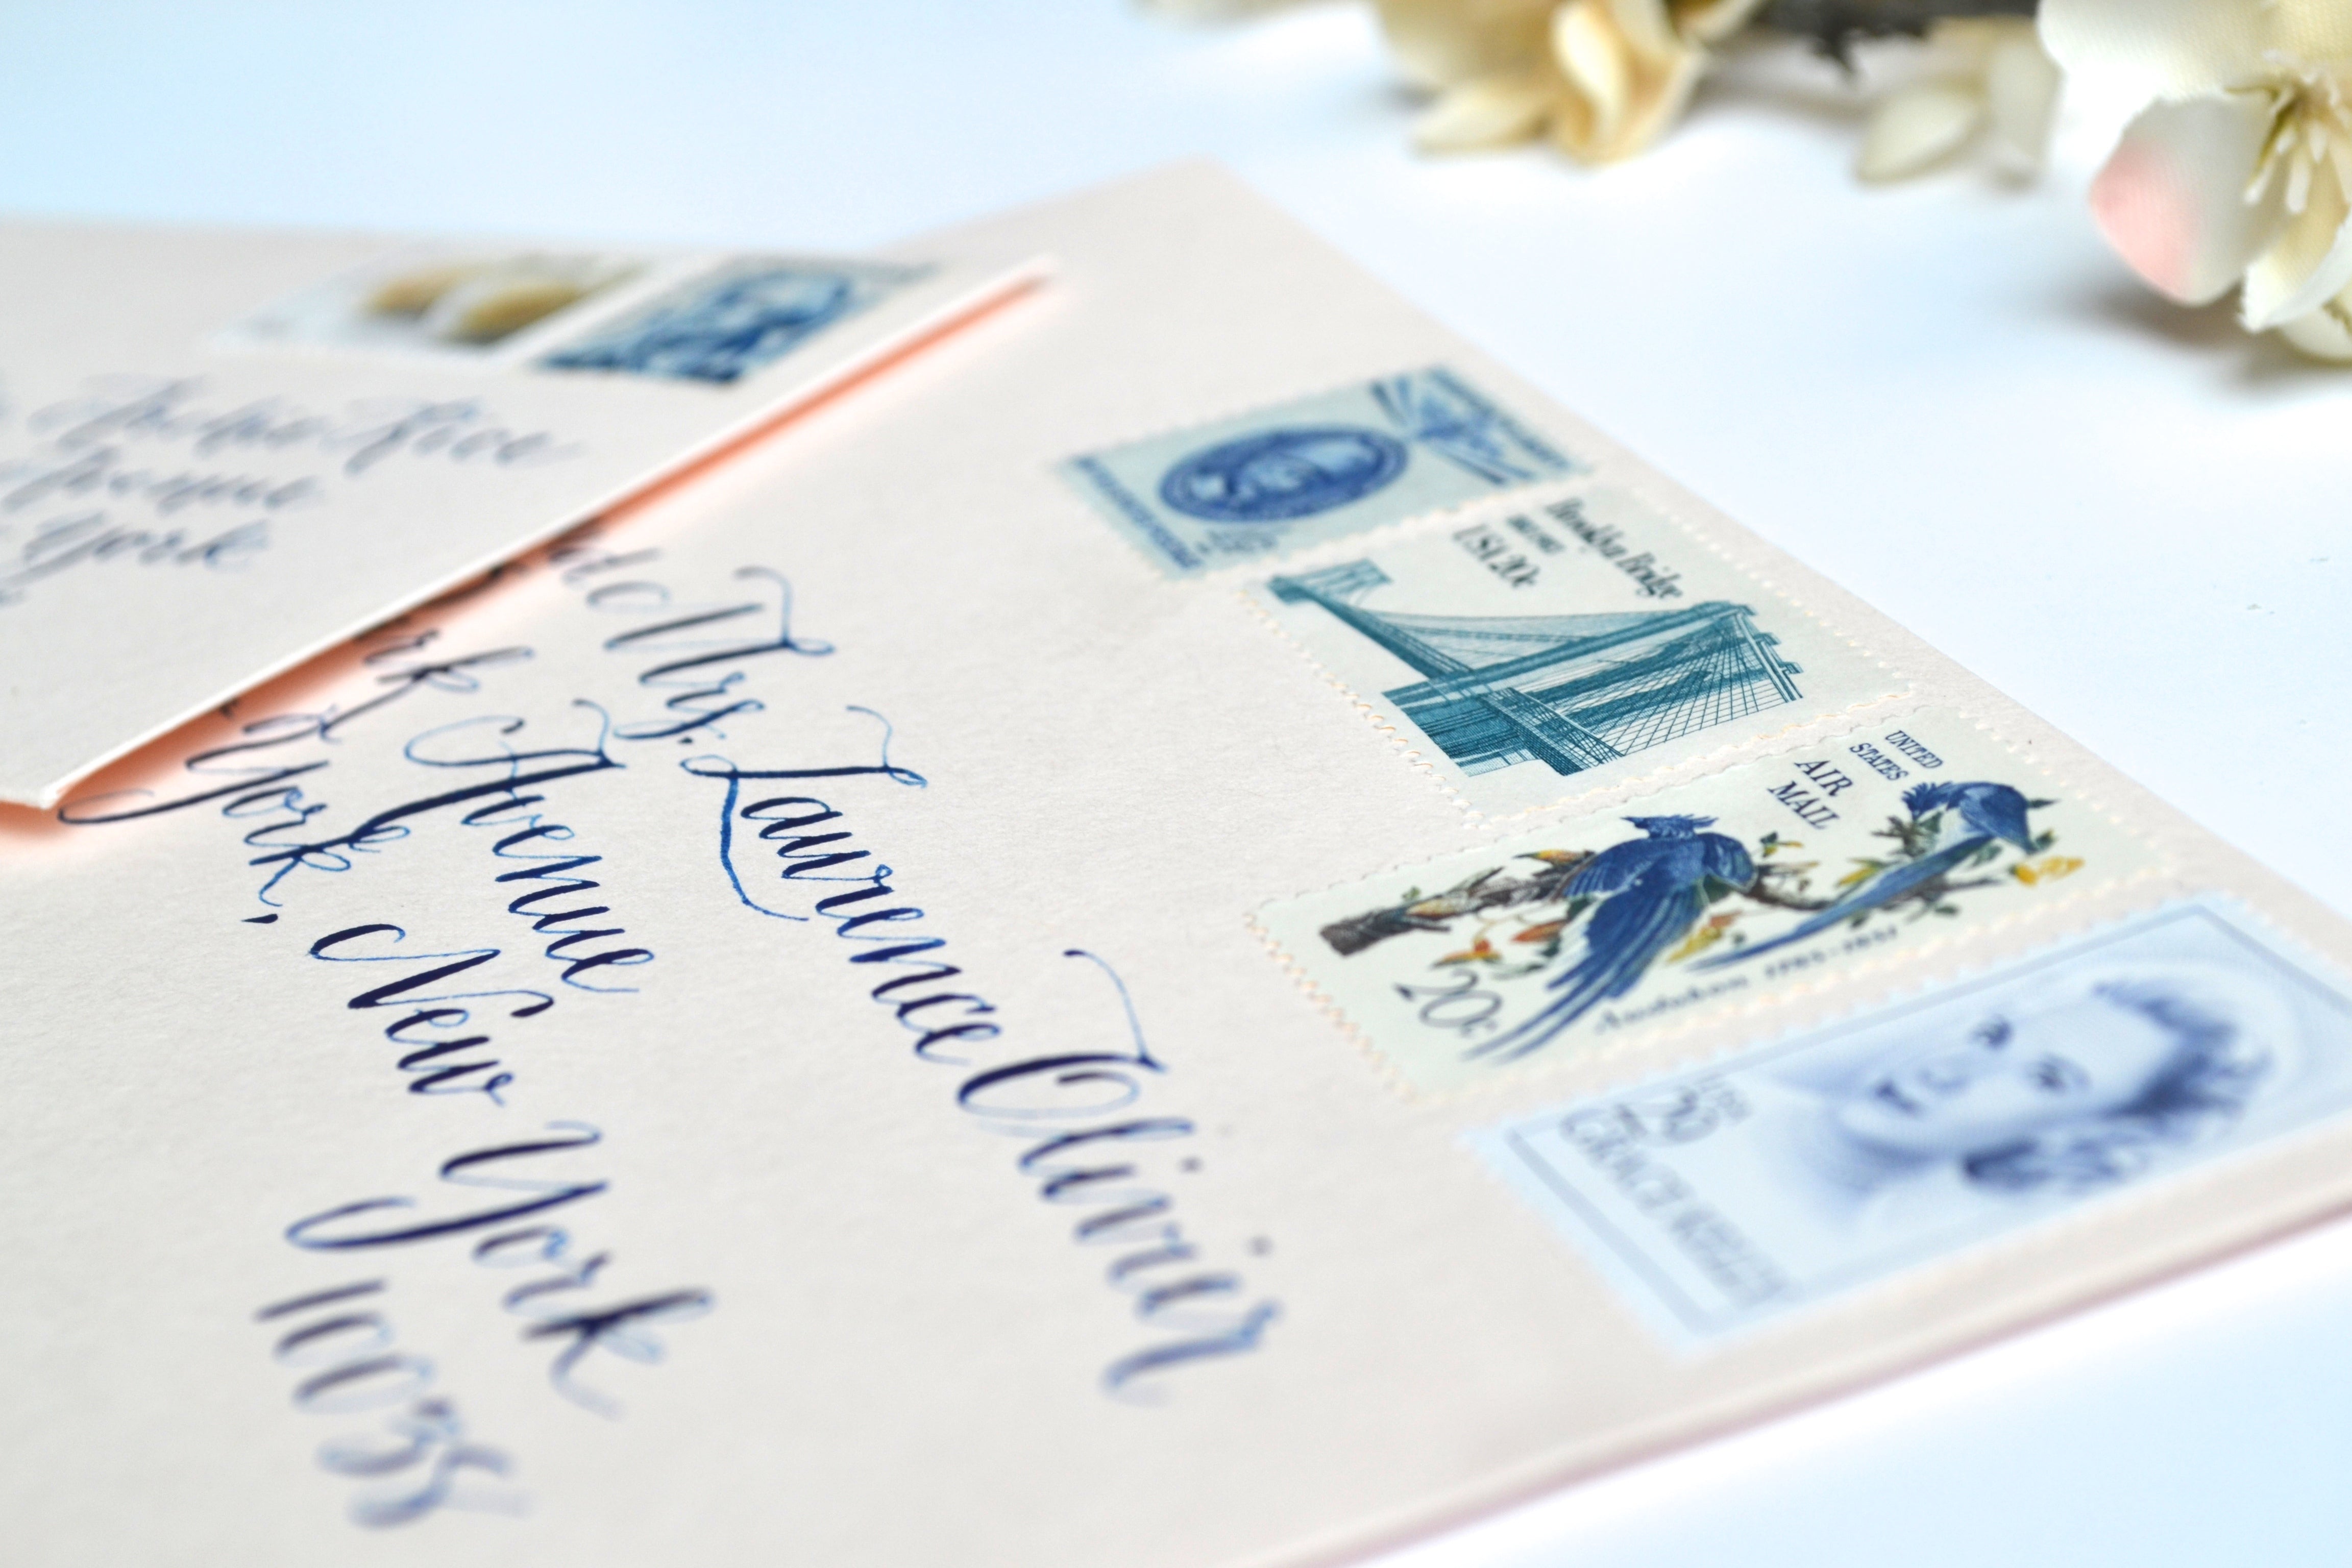 Mrs. Laurence Olivier
Avenue
York, New York
10035
Brooklyn Bridge
USA 20c
UNITED
STATES
AIR
MAIL
20c
Audubon 1785-1851
USA
29
GRACE KELLY
Avenue
York